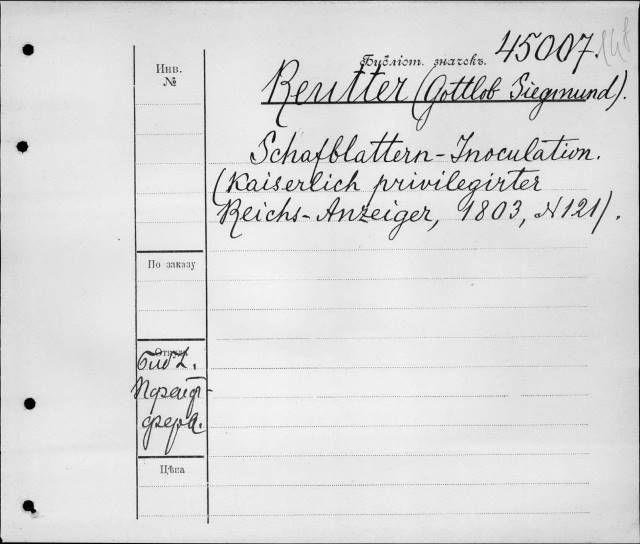 45007.
Библіот. значекъ.
Инв.
№
Reutter (Gottlob Siegmund).
Schafblattern-Inoculation.
(Kaiserlich privilegirter
Reichs-Anzeiger, 1803, N 121).
По заказу
Откуда
Библ.
Пфейф-
фера.
Цѣна